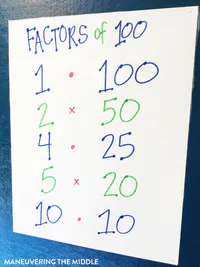 FACTORS of 100
1 • 100
2 x 50
4 • 25
5 x 20
10 • 10
MANEUVERING THE MIDDLE